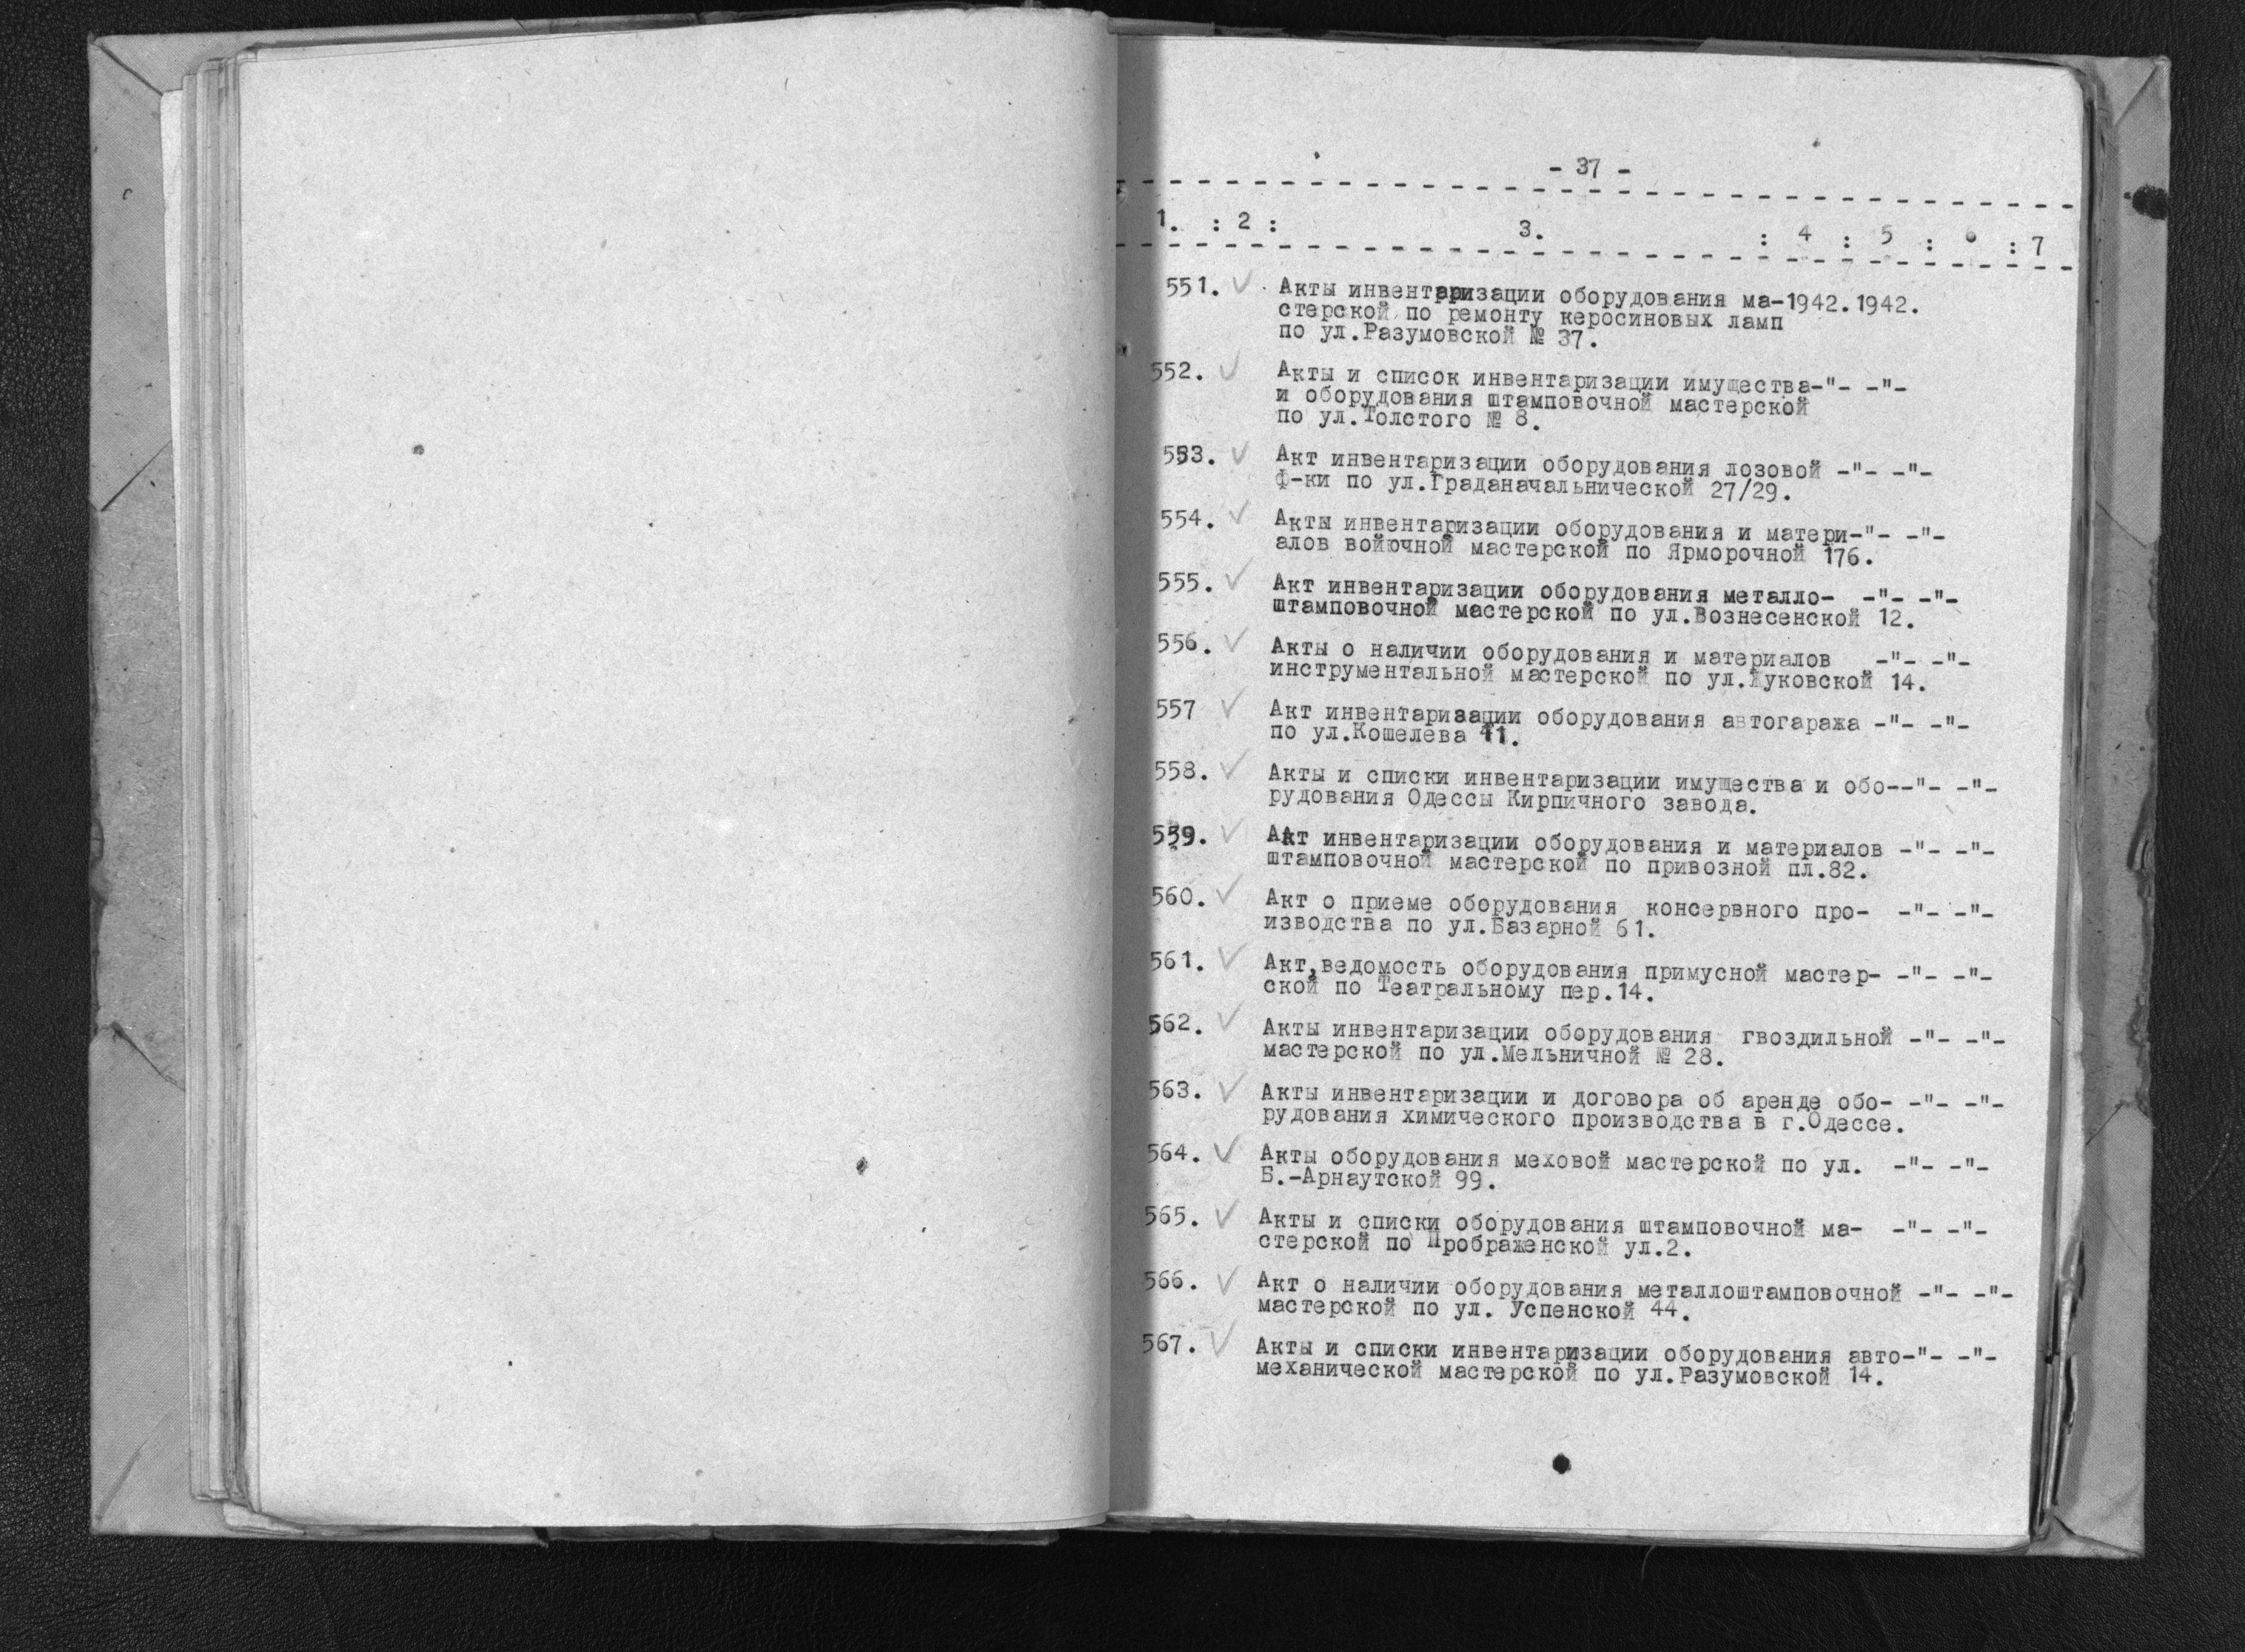 - 37 -
1. : 2 : 3. : 4 : 5 : 6 : 7
551. ✓ Акты инвентаризации оборудования ма-1942.1942.
стерской по ремонту керосиновых ламп
по ул.Разумовской № 37.
552. ✓ Акты и список инвентаризации имущества-"- -"-
и оборудования штамповочной мастерской
по ул.Толстого № 8.
553. ✓ Акт инвентаризации оборудования лозовой -"- -"-
Ф-ки по ул.Граданачальнической 27/29.
554. ✓ Акты инвентаризации оборудования и матери-"- -"-
алов войючной мастерской по Ярморочной 176.
555. ✓ Акт инвентаризации оборудования металло- -"- -"-
штамповочной мастерской по ул.Вознесенской 12.
556. ✓ Акты о наличии оборудования и материалов -"- -"-
инструментальной мастерской по ул.Жуковской 14.
557 ✓ Акт инвентаризации оборудования автогаража -"- -"-
по ул.Кошелева 11.
558. ✓ Акты и списки инвентаризации имущества и обо--"- -"-
рудования Одессы Кирпичного завода.
559. ✓ Акт инвентаризации оборудования и материалов -"- -"-
штамповочной мастерской по привозной пл.82.
560. ✓ Акт о приеме оборудования консервного про- -"- -"-
изводства по ул.Базарной 61.
561. ✓ Акт,ведомость оборудования примусной мастер- -"- -"-
ской по Театральному пер.14.
562. ✓ Акты инвентаризации оборудования гвоздильной -"- -"-
мастерской по ул.Мельничной № 28.
563. ✓ Акты инвентаризации и договора об аренде обо- -"- -"-
рудования химического производства в г.Одессе.
564. ✓ Акты оборудования меховой мастерской по ул. -"- -"-
Б.-Арнаутской 99.
565. ✓ Акты и списки оборудования штамповочной ма- -"- -"-
стерской по Прображенской ул.2.
566. ✓ Акт о наличии оборудования металлоштамповочной -"- -"-
мастерской по ул. Успенской 44.
567. ✓ Акты и списки инвентаризации оборудования авто-"- -"-
механической мастерской по ул.Разумовской 14.